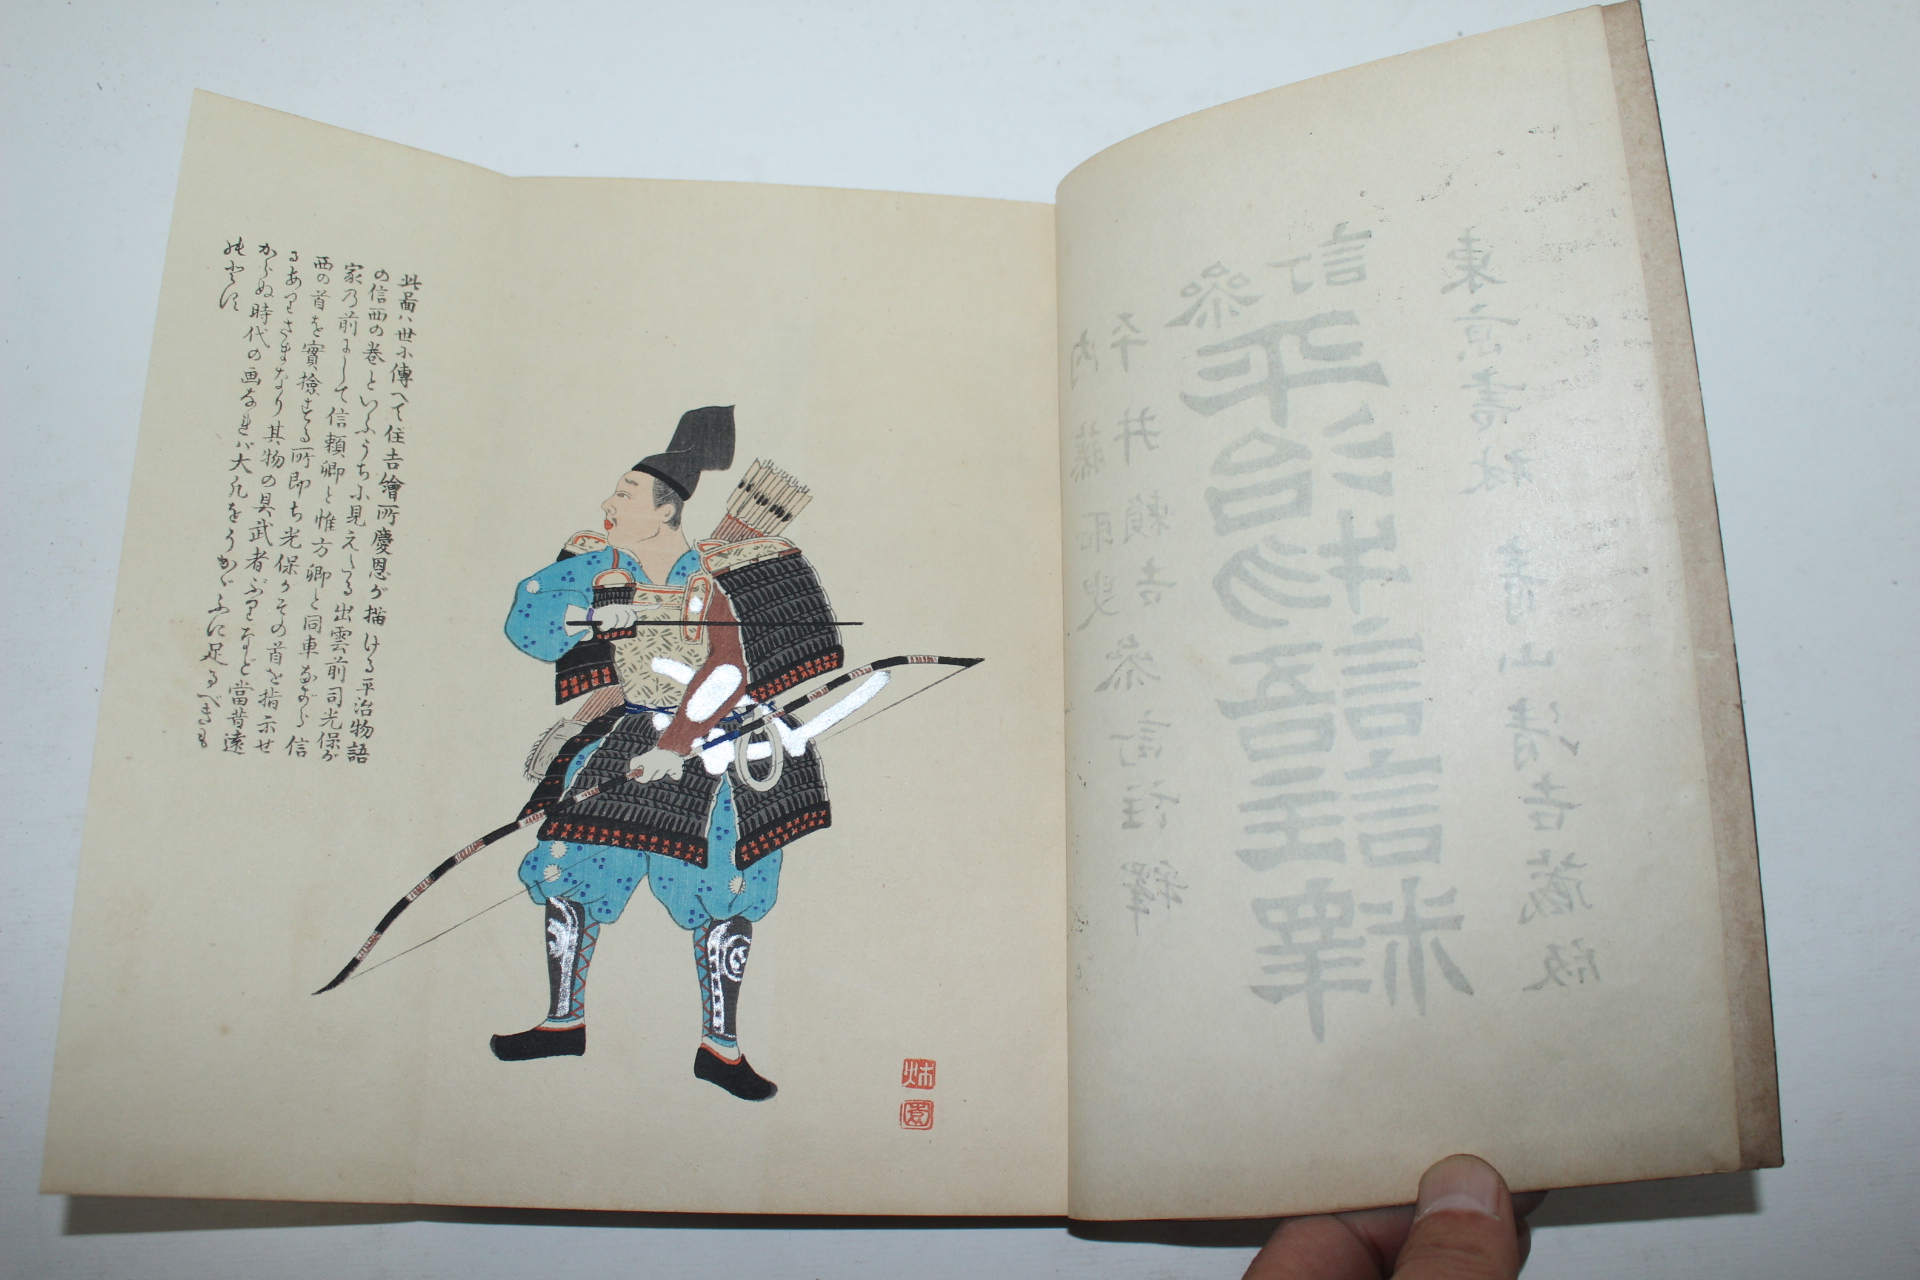 東京書林 青山清吉蔵版
訂
参
平治物語註釋
平井頼吉參訂
内藤耻叟註釋
此圖ハ世に傳へて住吉繪所慶恩が描ける平治物語
の信西の巻といふうちに見えたる出雲前司光保が
家の前にして信頼卿と惟方卿と同車ながら信
西の首を實撿する所即ち光保がその首を指示せ
るありさまなり其物の具武者ぶりなど當昔遠
からぬ時代の画なれバ大凡をうかゞふに足るべきも
のとす